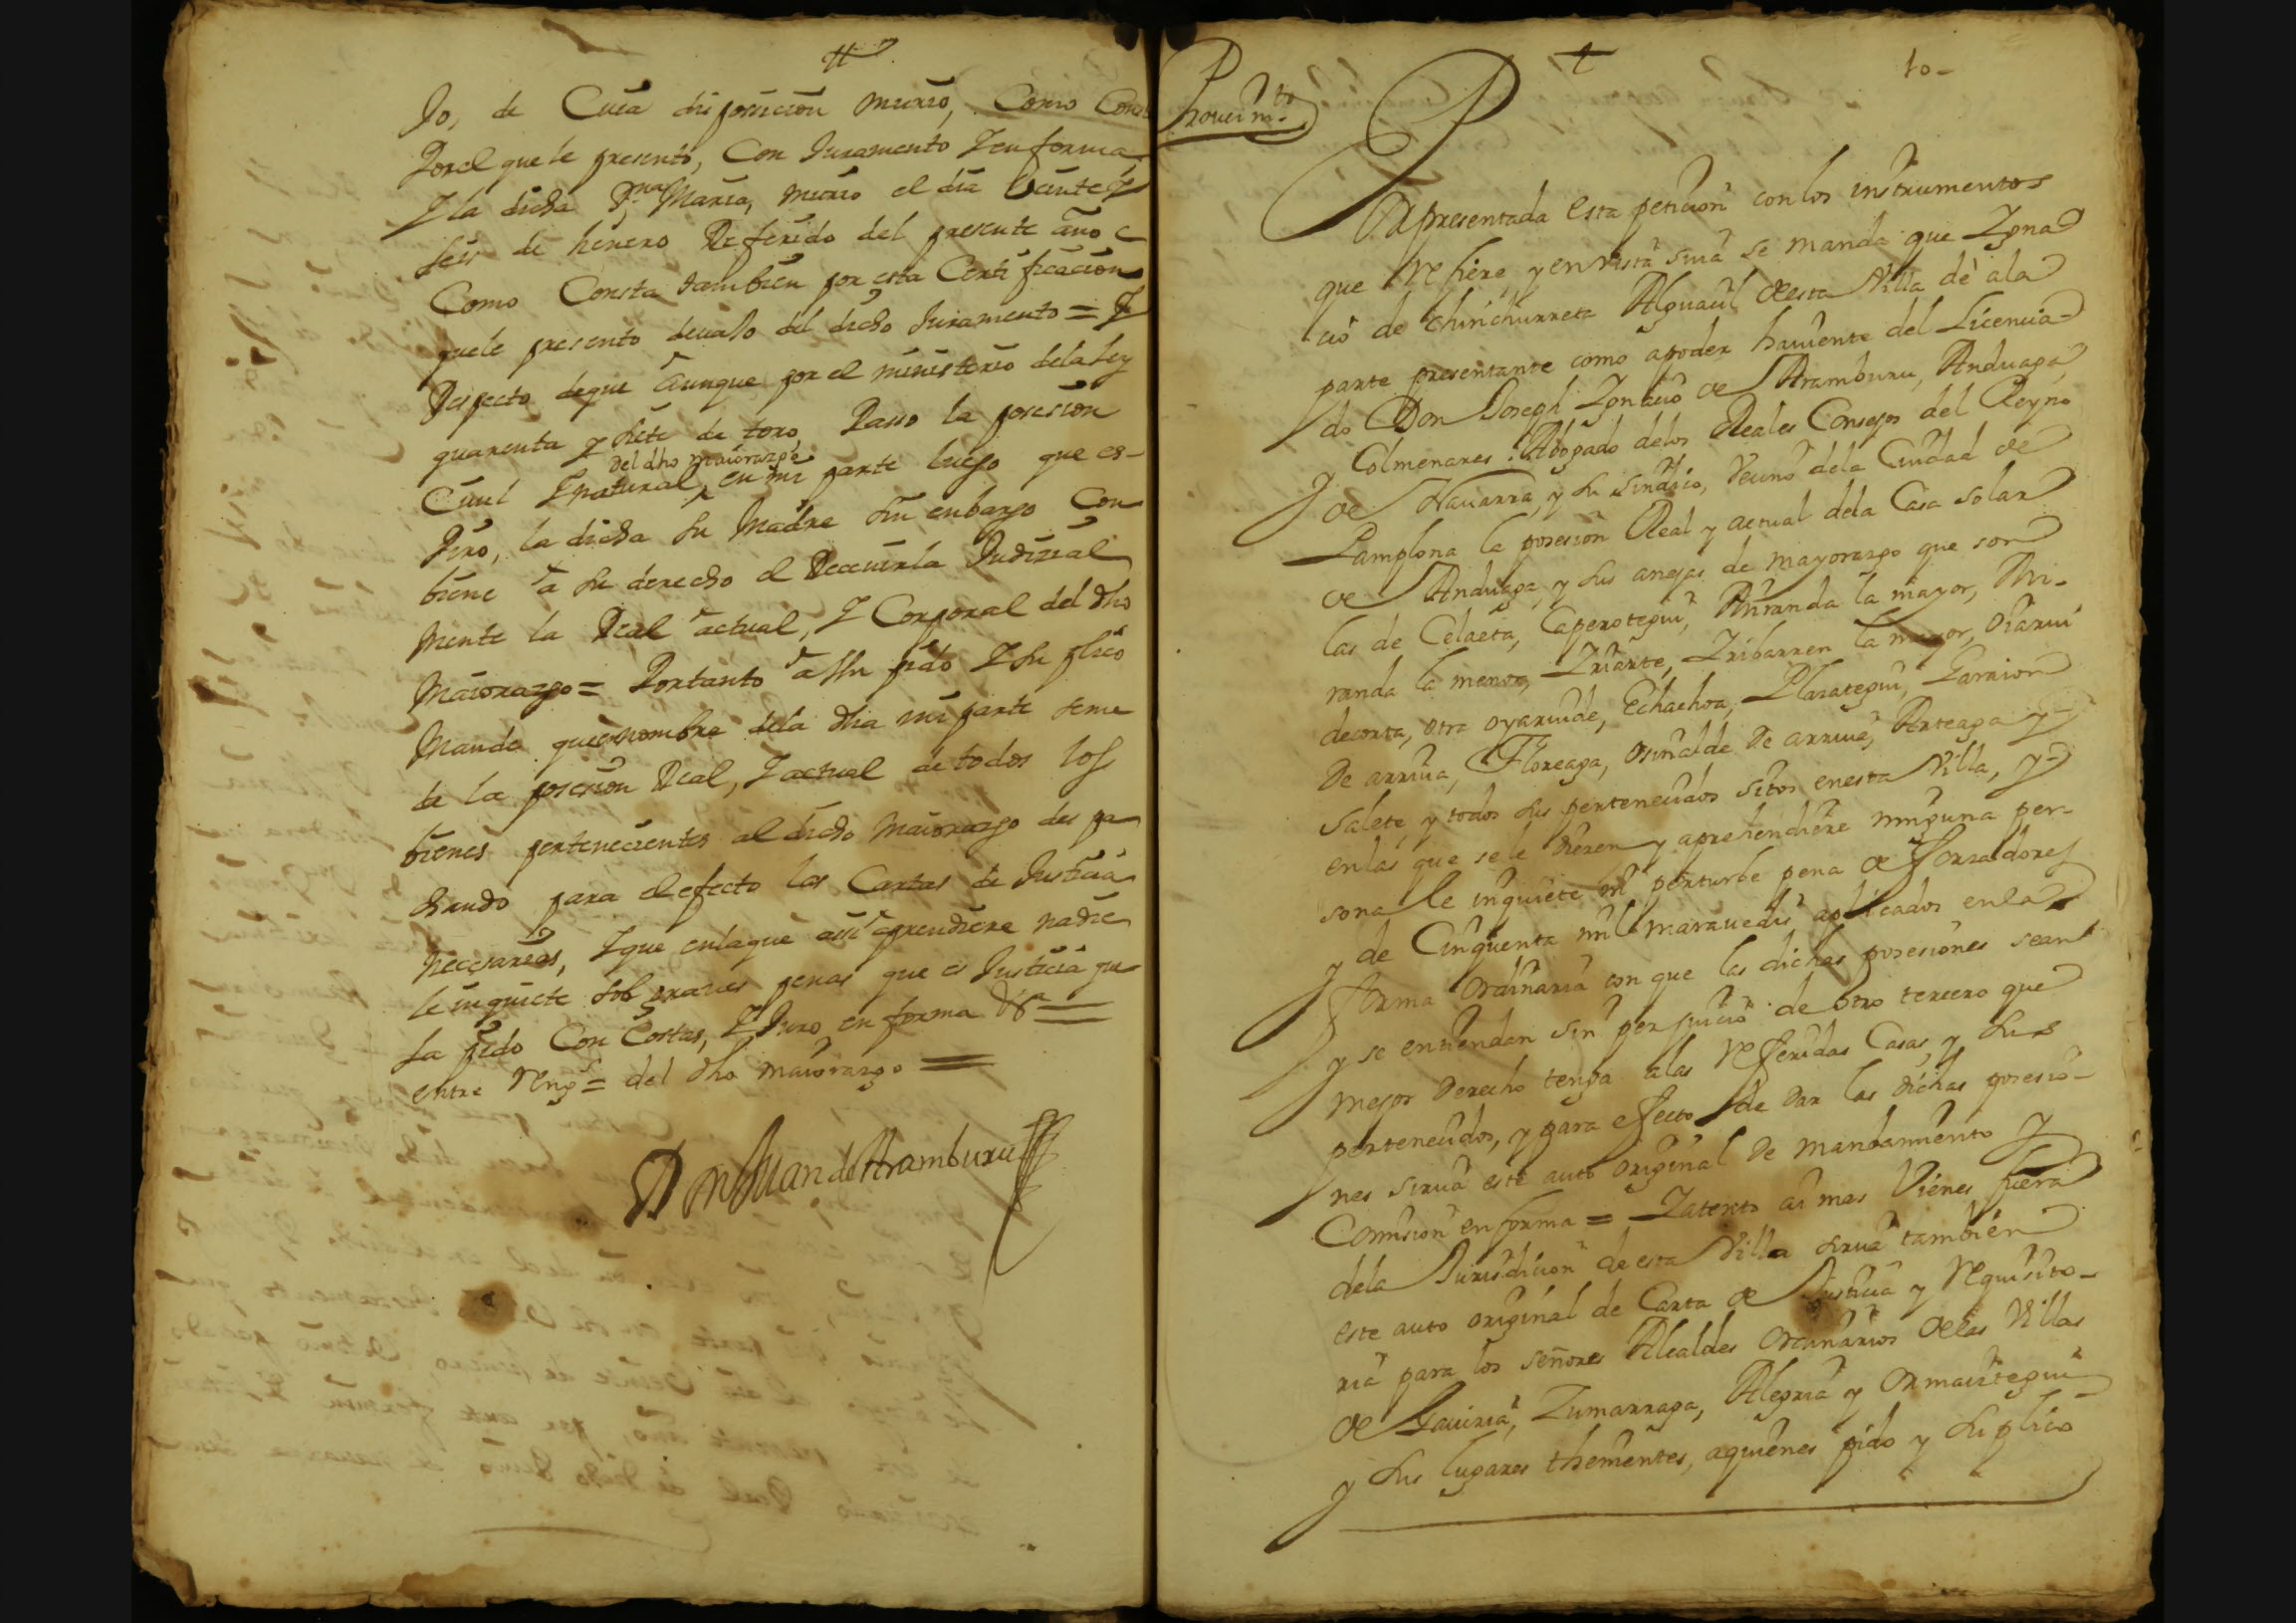 Jo, de Cuia disposicion murio, Como Const
Por el que le presento, Con Juramento Y en forma,
Y la dicha D.ña Maria, murio el dia Veinte y
seis de henero Referido del presente año
Como Consta tambien por esta Certificacion
que le presento devajo del dicho Juramento = Y
Respecto de que aunque por el ministerio de la ley
quarenta y siete de toro, Passo la posesion
Ciuil Y natural, del dho maiorazgo en mi parte luego que es-
piro, la dicha su Madre sin enbargo Con
biene a su derecho el Receuirla Judizial
mente la Real actual, Y Corporal del dho
Maiorazgo = Portanto a Vm pido Y suplico
Mande que en nombre dela dha mi parte seme
de la posesion Real, Y actual de todos los
bienes pertenecientes al dicho maiorazgo despa
chando para el efecto las Cartas de Justicia
necesarias, Y que enlaque assi aprendiere nadie
le inquiete sob graues penas que es Justicia que
la pido Con Costas, Y Juro en forma &ª =
entre Reng.s = del dho maiorazgo =
Dn Juan de Aramburu
10-
Proueim.to
Por presentada esta peticion con los instrumentos
que refiere, y en vista sua se manda que Ygna
cio de Chinchurreta Alguacil de esta Villa dè ala
parte presentante como apoder hauiente del Licencia-
do Don Joseph Ygnacio de Aramburu, Anduaga,
y Colmenares Abogado delos Reales Consejos del Reyno
de Nauarra, y su Sindico, Vecino dela Ciudad de
Pamplona la posesion Real y actual dela Casa solar
de Anduaga, y sus anejas de mayorazgo que son
las de Celaeta, Caperotegui, Miranda la mayor, Mi-
randa la menor, Yriarte, Yribarren la mayor, Oiarui
decorta, otra oyaruide, Echachoa, Plazategui, Garrion
De arriua, Floreaga, Osinalde De arriua, Arteaga y-
Salete y todos sus pertenecidos sitos enesta Villa, y-
enlas que se le dieren y aprehendiere ninguna per-
sona le inquiete ni perturbe pena de forzadores
y de Cinquenta mil marauedis aplicados enla
forma ordinaria con que las dichas posesiones sean
y se entiendan sin perjuicio de otro tercero que
mejor derecho tenga alas referidas Casas, y sus
pertenecidos, y para efecto de dar las dichas posesio-
nes sirua este auto original de mandamiento y
Comision en forma = Yatento ai mas Vienes fuera
dela Jurisdicion de esta Villa sirua tambien
este auto original de Carta de Justicia y requisito-
ria para los señores Alcaldes ordinarios delas Villas
de Gauiria, Zumarraga, Alegria y Ormaiztegui
y sus lugares thenientes, aquienes pido y suplico